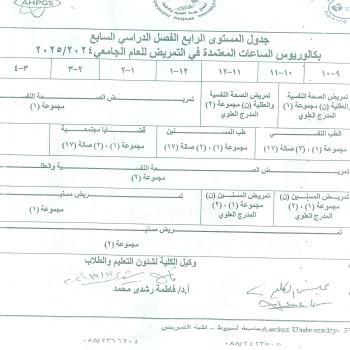 AHPGS
جدول المستوى الرابع الفصل الدراسي السابع
بكالوريوس الساعات المعتمدة في التمريض للعام الجامعي ٢٠٢٥/٢٠٢٤
٩-١٠ ١٠-١١ ١١-١٢ ١٢-١ ١-٢ ٢-٣ ٣-٤
تمريض الصحة النفسية والعقلية (ن) مجموعة (١) تمريض الصحة النفسية والعقلية (ن) مجموعة (١)، (٢) المدرج العلوي تمريض الصحة النفس مجموعة (١)
الطب النفسي مجموعة (١)، (٢) صالة (١٧) طب المسنين مجموعة (١)، (٢) صالة (١٧) قضايا مجتمعية مجموعة (١)، (٢) صالة (١٧)
تمريض الصحة النفسية والعقل
مجموعة (٢)
تمريض المسنين (ن) مجموعة (١)، (٢) المدرج العلوي تمريض المسنين (ن) مجموعة (١)، (٢) المدرج العلوي تمريض مسنين مجموعة (١)
مجموعة (٢)
وكيل الكلية لشئون التعليم والطلاب
أ.د/ فاطمة رشدى محمد
جامعة أسيوط - كلية التمريض Assiut University-
٠٨٨/٢٣٦٦٢٠٤